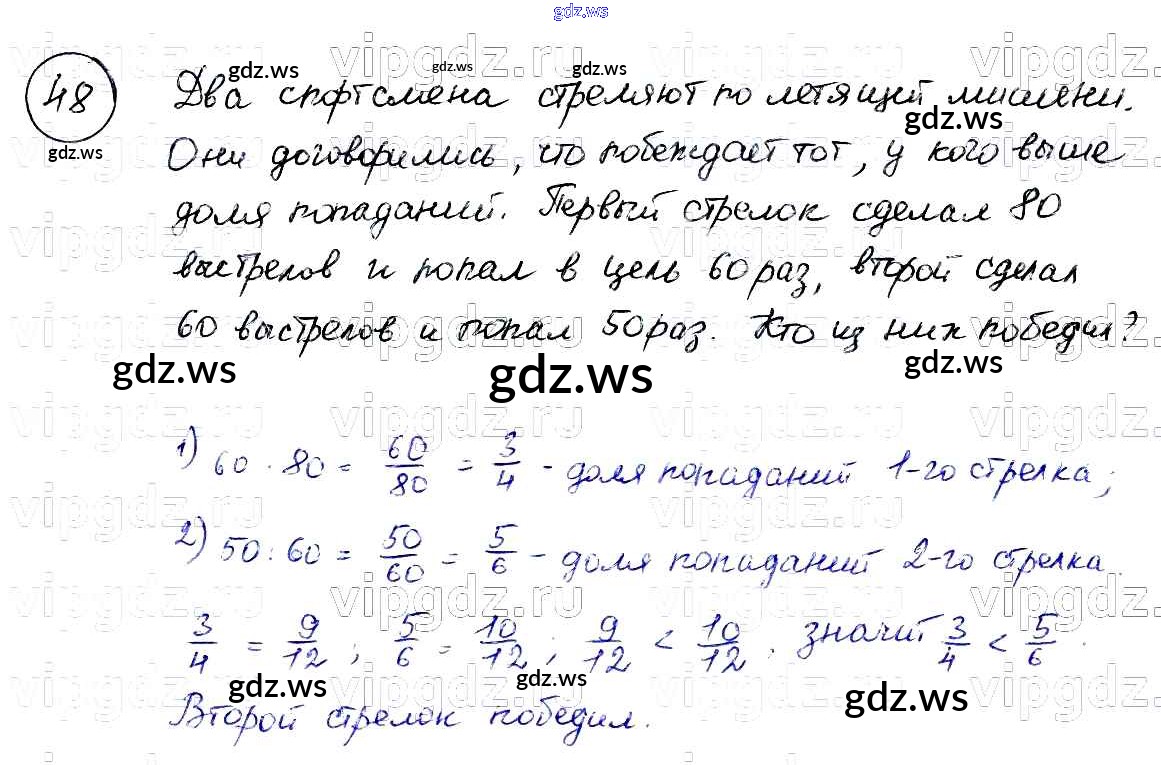 gdz.ws
48
Два спортсмена стреляют по летящей мишени.
Они договорились, что побеждает тот, у кого выше
доля попаданий. Первый стрелок сделал 80
выстрелов и попал в цель 60 раз, второй сделал
60 выстрелов и попал 50 раз. Кто из них победил?
1) 60 · 80 = 60/80 = 3/4 - доля попаданий 1-го стрелка;
2) 50 : 60 = 50/60 = 5/6 - доля попаданий 2-го стрелка.
3/4 = 9/12; 5/6 = 10/12; 9/12 < 10/12, значит 3/4 < 5/6.
Второй стрелок победил.